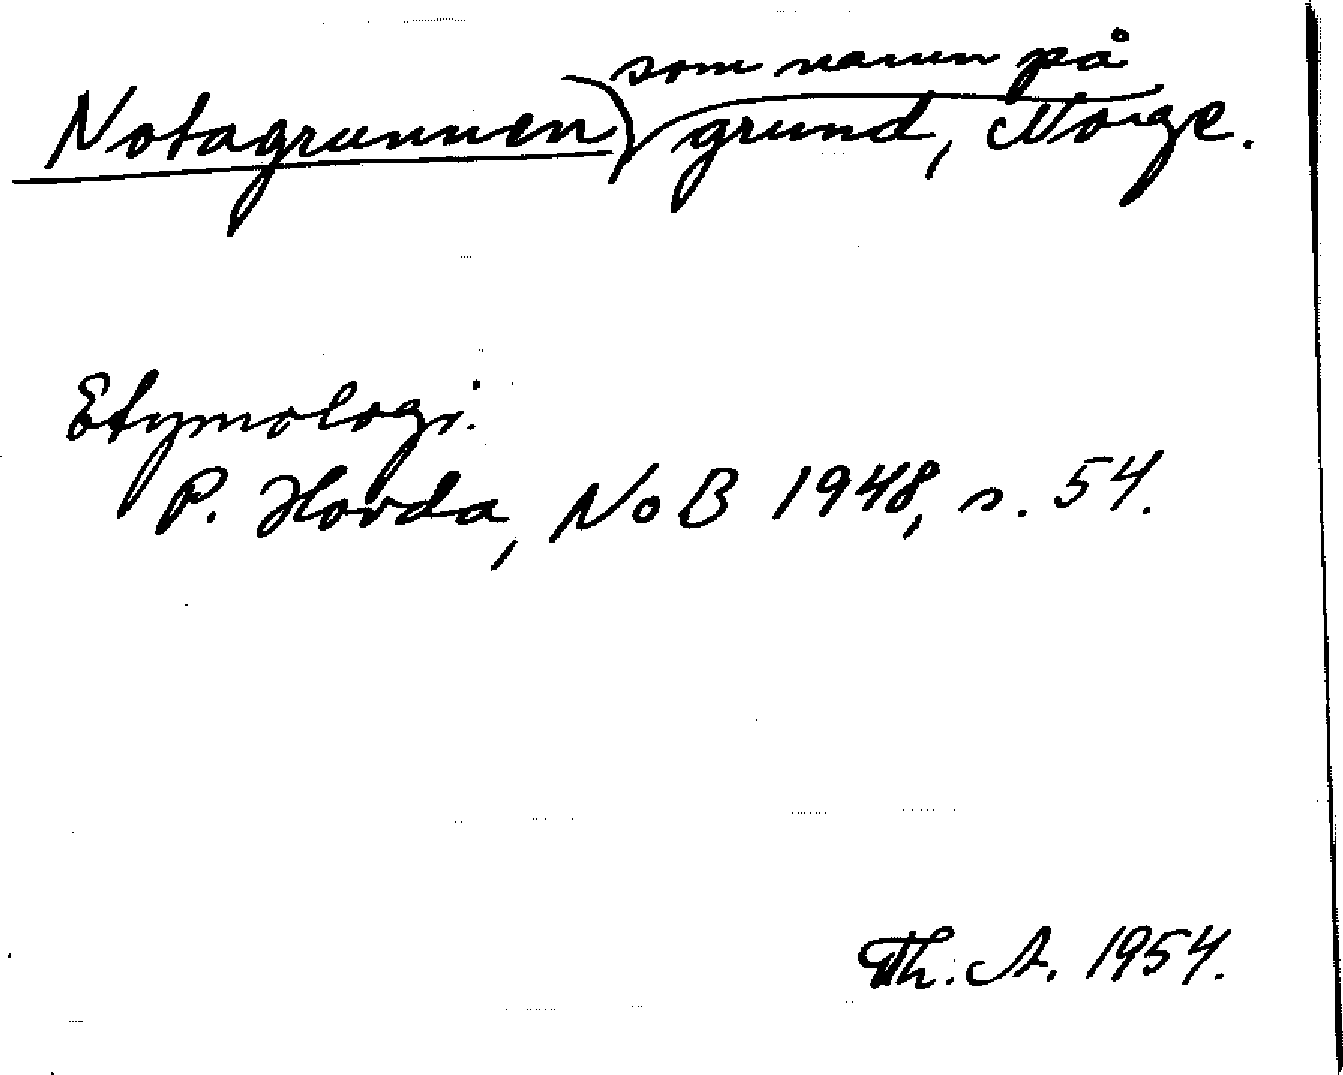 som namn på
Notagrunnen grund, Norge.
Etymologi.
P. Hovda, NoB 1948, s. 54.
Th. A. 1954.